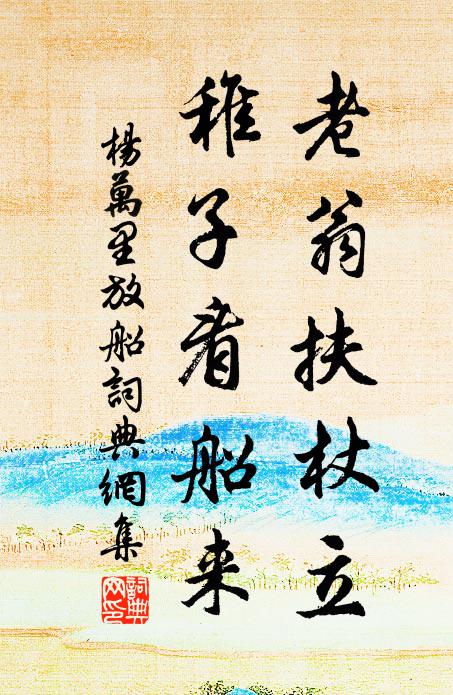 老翁扶杖立
稚子看船来
楊萬里放船詞典網集
詞典網印